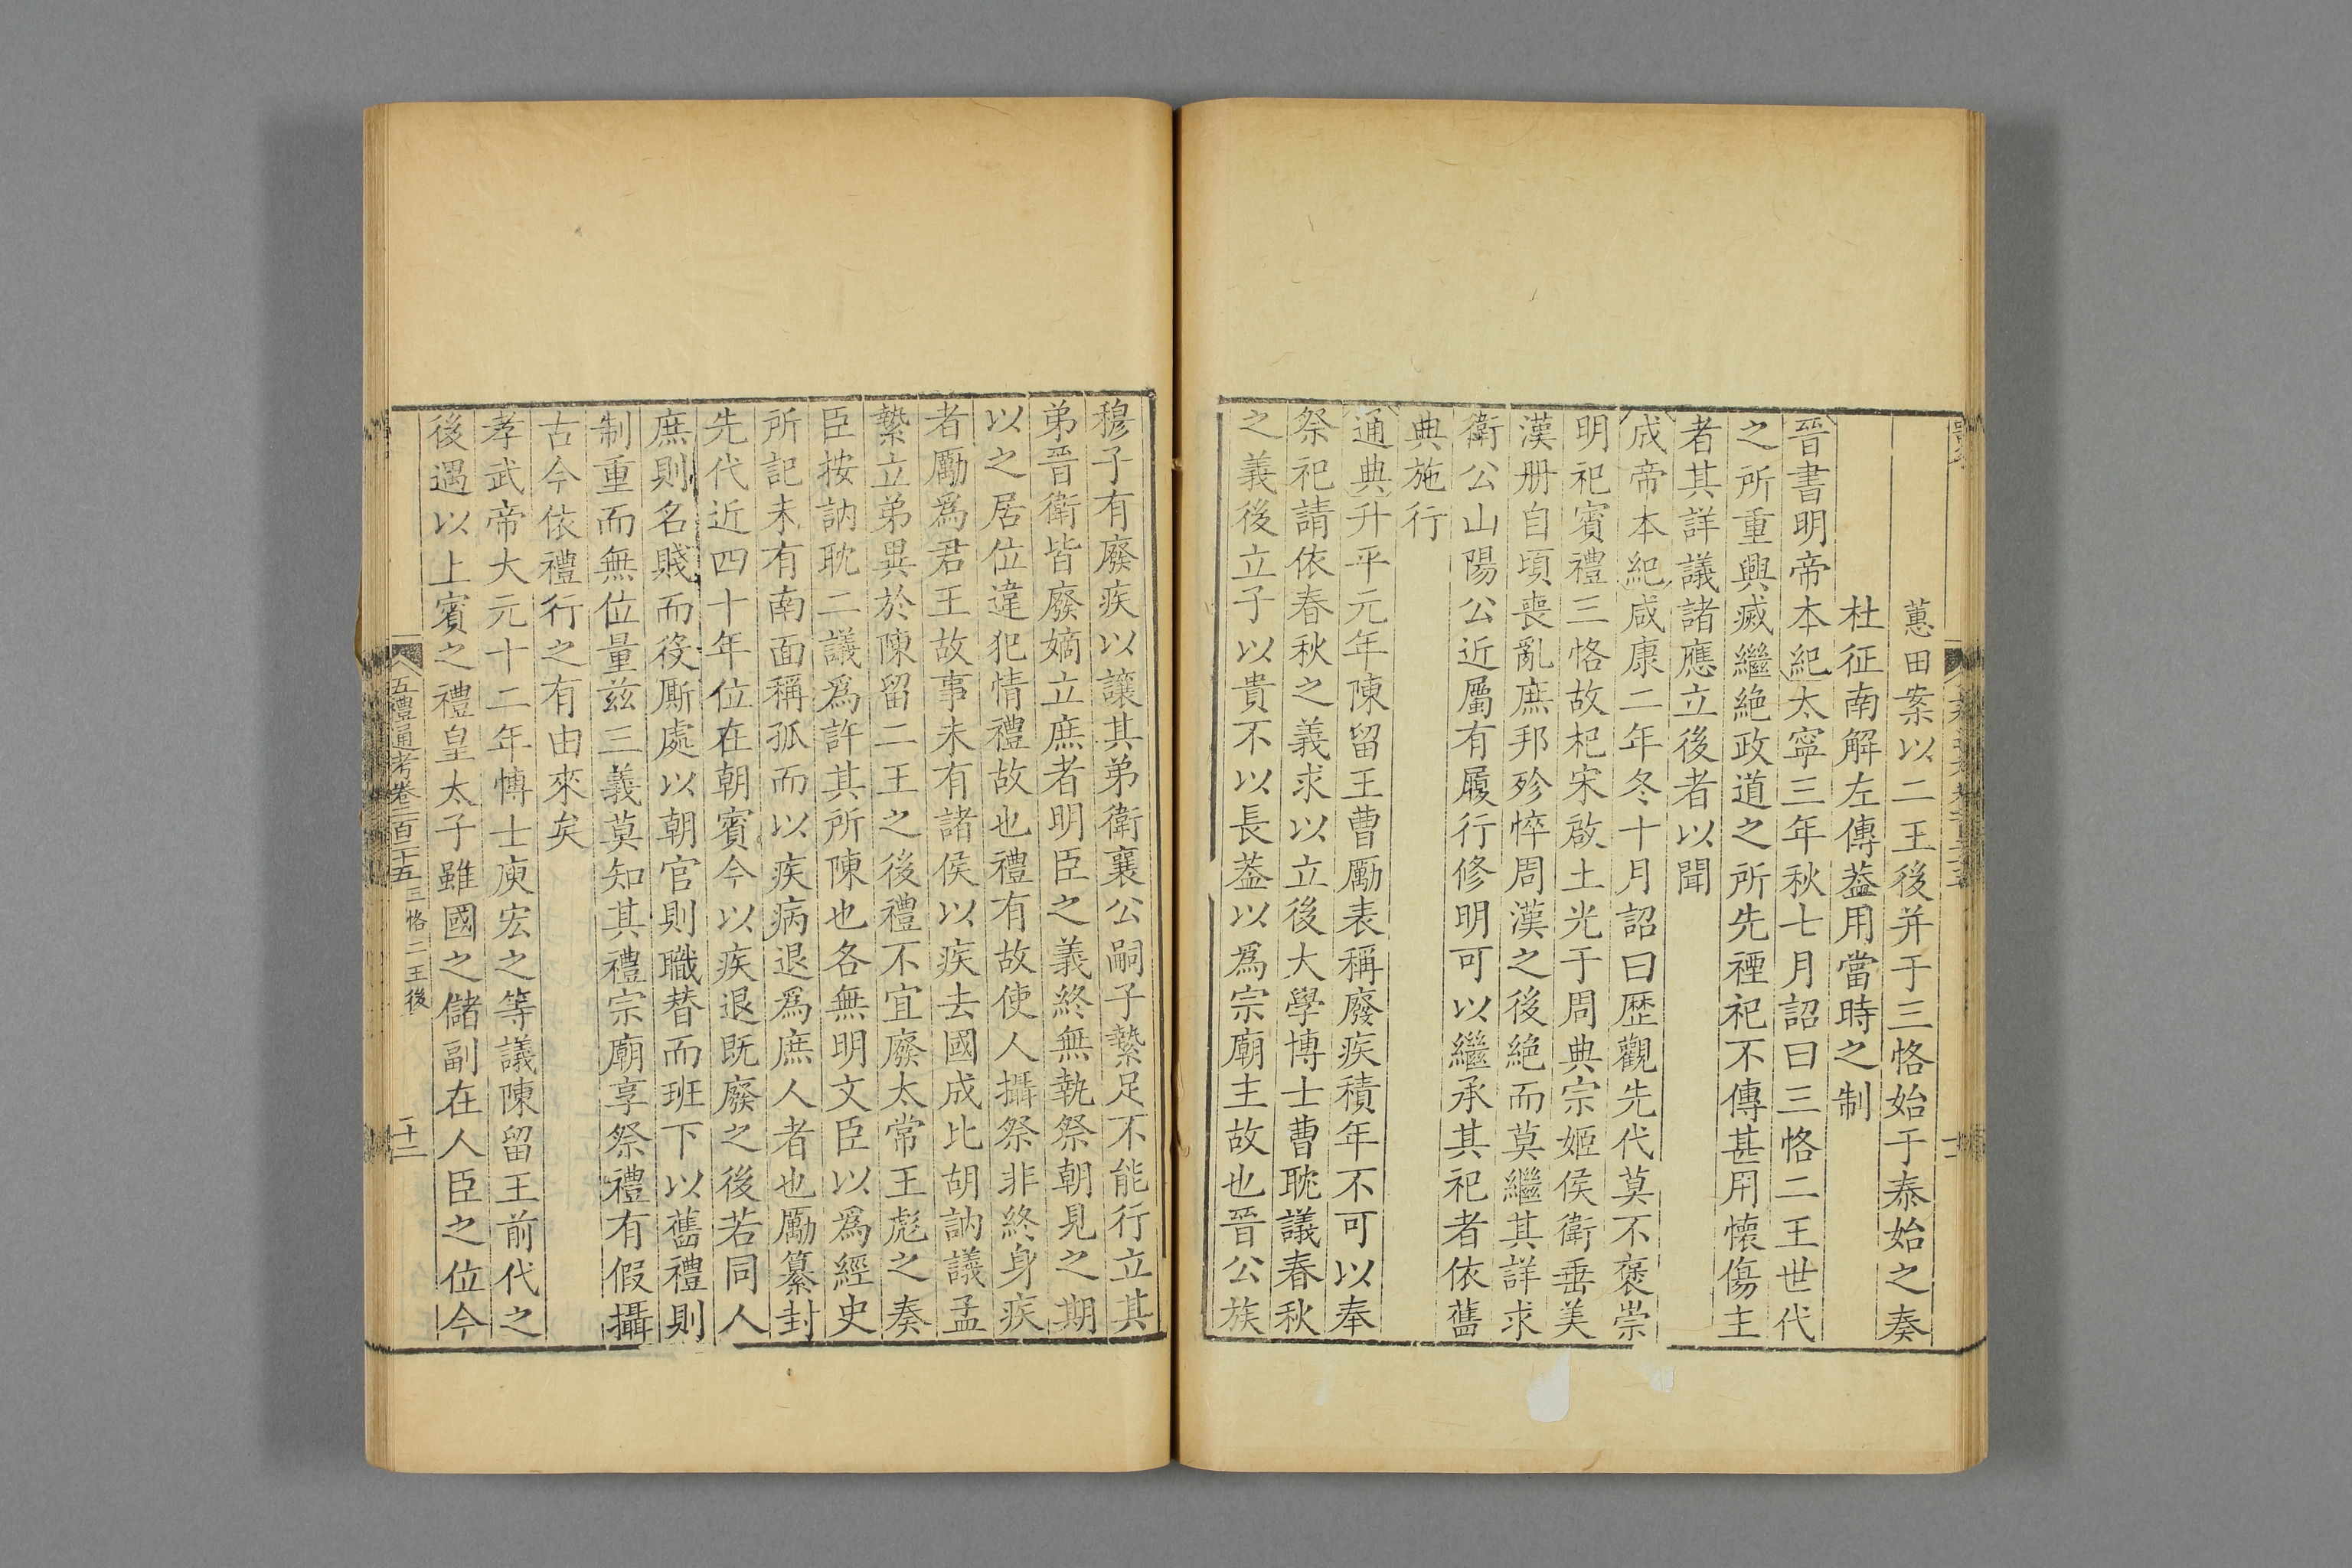 蕙田案以二王後并于三恪始于泰始之奏
杜征南解左傳葢用當時之制
晉書明帝本紀太寧三年秋七月詔曰三恪二王世代
之所重興滅繼絶政道之所先禋祀不傳甚用懐傷主
者其詳議諸應立後者以聞
成帝本紀咸康二年冬十月詔曰歴觀先代莫不褒崇
明祀賓禮三恪故杞宋啟土光于周典宗姬侯衛垂美
漢册自頃喪亂庶邦殄悴周漢之後絶而莫繼其詳求
衛公山陽公近屬有履行修明可以繼承其祀者依舊
典施行
通典升平元年陳留王曹勵表稱廢疾積年不可以奉
祭祀請依春秋之義求以立後大學博士曹耽議春秋
之義後立子以貴不以長葢以爲宗廟主故也晉公族
穆子有廢疾以讓其弟衛襄公嗣子縶足不能行立其
弟晉衛皆廢嫡立庶者明臣之義終無執祭朝見之期
以之居位違犯情禮故也禮有故使人攝祭非終身疾
者勵爲君王故事未有諸侯以疾去國成比胡訥議孟
縶立弟異於陳留二王之後禮不宜廢太常王彪之奏
臣按訥耽二議爲許其所陳也各無明文臣以爲經史
所記未有南面稱孤而以疾病退爲庶人者也勵纂封
先代近四十年位在朝賓今以疾退既廢之後若同人
庶則名賤而役厮處以朝官則職替而班下以舊禮則
制重而無位量兹三義莫知其禮宗廟享祭禮有假攝
古今依禮行之有由來矣
孝武帝大元十二年博士庾宏之等議陳留王前代之
後遇以上賓之禮皇太子雖國之儲副在人臣之位今
五禮通考卷二百二十五 三恪二王後
十二